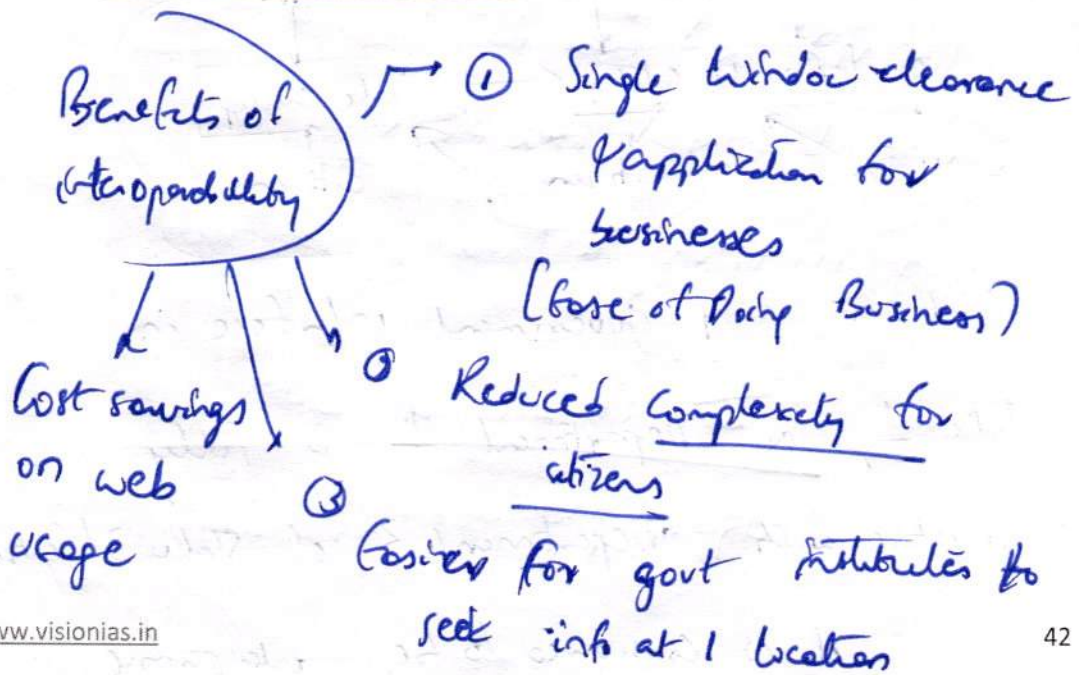 Benefits of
interoperability
① Single window clearance
& application for
businesses
(Ease of Doing Business)
② Reduced complexity for
citizens
③ Easier for govt institutes to
seek info at 1 location
Cost savings
on web
usage
ww.visionias.in
42